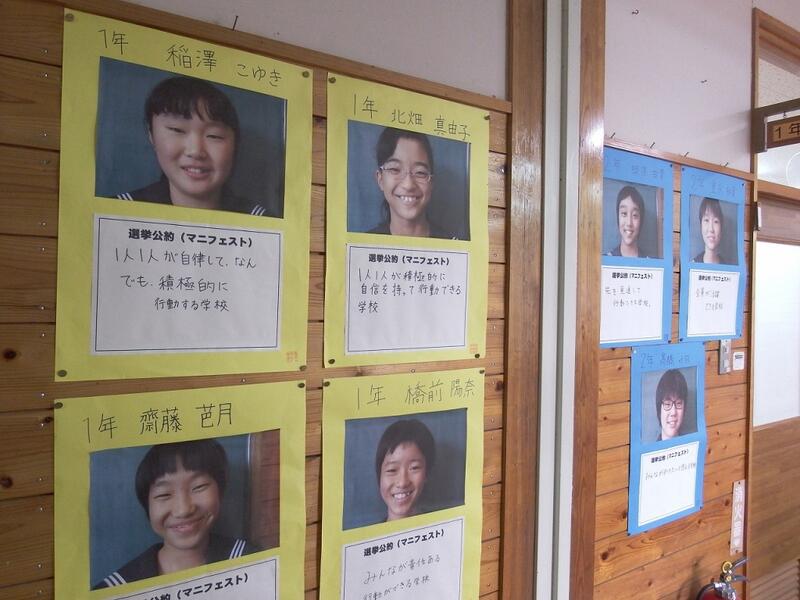 1年 稲澤 こゆき
選挙公約（マニフェスト）
1人1人が自律して、なん
でも、積極的に
行動する学校
1年 北畑 真由子
選挙公約（マニフェスト）
1人1人が積極的に
自信を持って行動できる
学校
1年 齋藤 芭月
選挙公約（マニフェスト）
1年 橋前 陽奈
選挙公約（マニフェスト）
みんなが責任ある
行動ができる学校
2年
選挙公約（マニフェスト）
先を見通して
行動できる学校。
2年
選挙公約（マニフェスト）
全員が活躍
できる学校
2年 髙橋
選挙公約（マニフェスト）
みんなが
1年
消火器